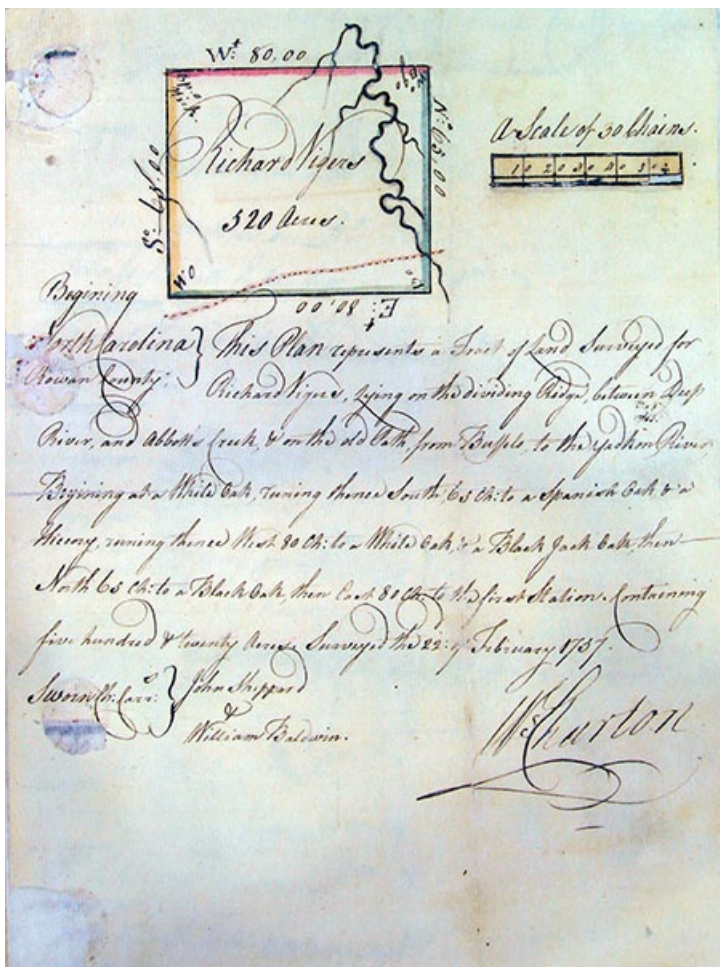 Wt. 80.00
Richard Vigers
520 Acres.
So. 65.00
No. 65.00
Et. 80.00
W.O
A Scale of 30 Chains.
10 20 30 40 50
Begining
North Carolina } This Plan represents a Tract of Land Surveyed for
Rowan County } Richard Vigers, Lying on the dividing Ridge, between Deep
River, and Abbott's Creek, & on the old Path, from Buffelo, to the Yadkin River
Begining at a White Oak, runing thence South, 65 Ch: to a Spanish Oak & a
Hicory, runing thence West 80 Ch: to a White Oak, & a Black Jack Oak, then
North 65 Ch: to a Black Oak, then East 80 Ch: to the first Station. Containing
five hundred & twenty Acres, Surveyed the 22: of February 1757.
Sworn Ch: Carr: } John Sheppard
&
William Baldwin.
Wm Churton